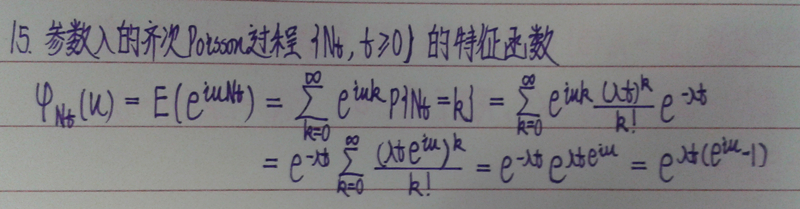 15. 参数λ的齐次Poisson过程 {Nt, t≥0} 的特征函数
φ_{Nt}(u) = E(e^{iuNt}) = ∑_{k=0}^{∞} e^{iuk} P{Nt=k} = ∑_{k=0}^{∞} e^{iuk} (λt)^k/k! e^{-λt}
= e^{-λt} ∑_{k=0}^{∞} (λt e^{iu})^k/k! = e^{-λt} e^{λt e^{iu}} = e^{λt(e^{iu}-1)}